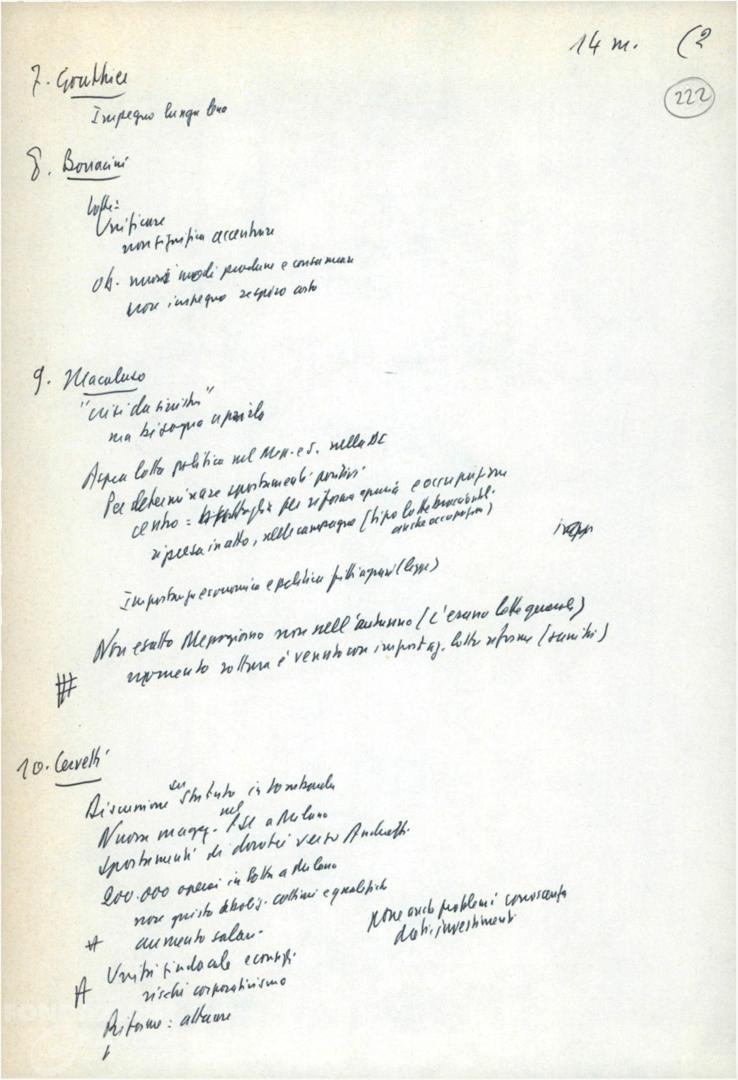 14 m. (2
222
7. Gouthier
Impegno lunga lena
8. Bonacini
Lotte:
Unificare
non significa accentrare
Ob. nuovi modi produrre e consumare
non impegno respiro corto
9. Macaluso
"crisi da sinistra"
ma bisogna aprirla
Aspra lotta politica nel Mer. e S. nella DC
Per determinare spostamenti positivi
centro = battaglia per riforma agraria e occupazione
ripresa in atto, nelle campagne (tipo lotte bracciantil.
anche occupazioni)
Importanza economica e politica fitti agrari (legge)
Non esatto Mezzogiorno non nell'autunno (c'erano lotte generali)
momento rottura è venuto con impostaz. lotta riforme (sanità)
10. Cervetti
Discussione su Statuto in Lombardia
Nuova magg. nel PSI a Milano
Spostamenti di dorotei verso Andreotti
200.000 operai in lotta a Milano
non giusto aboliz. cottimi e qualifiche
# aumento salar.
pone anche problemi conoscenza
dati, investimenti
Unità sindacale e consigli
rischi corporativismo
Riforme: attuare